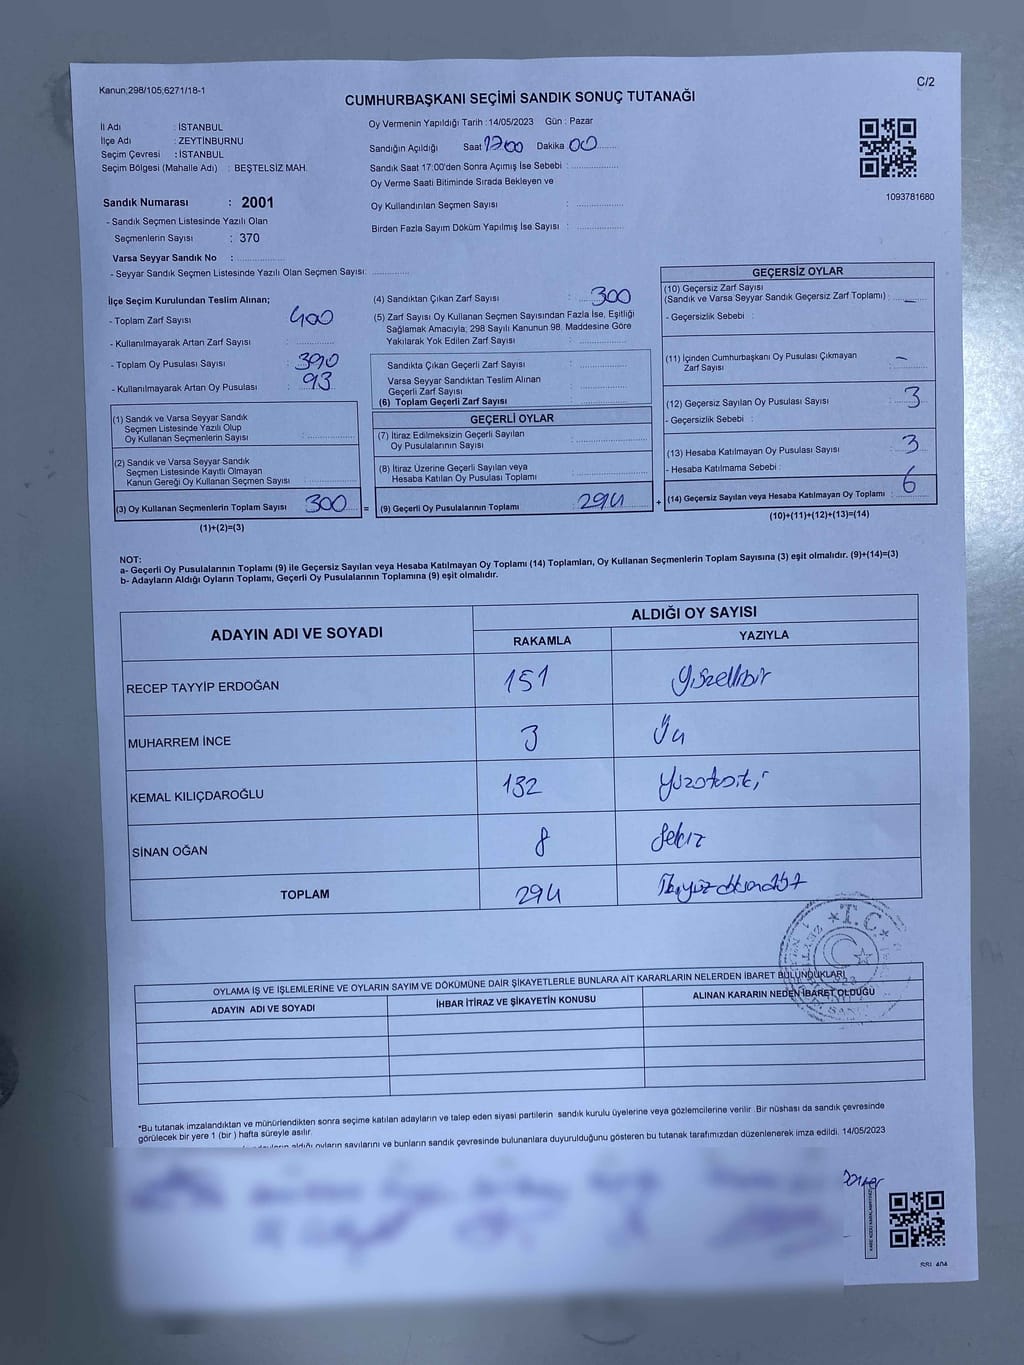 Kanun;298/105;6271/18-1
C/2
CUMHURBAŞKANI SEÇİMİ SANDIK SONUÇ TUTANAĞI
İl Adı : İSTANBUL
İlçe Adı : ZEYTİNBURNU
Seçim Çevresi : İSTANBUL
Seçim Bölgesi (Mahalle Adı) : BEŞTELSİZ MAH.
Oy Vermenin Yapıldığı Tarih : 14/05/2023 Gün : Pazar
Sandığın Açıldığı Saat 17:00 Dakika 00
Sandık Saat 17:00'den Sonra Açımış İse Sebebi :
Oy Verme Saati Bitiminde Sırada Bekleyen ve
Oy Kullandırılan Seçmen Sayısı :
Birden Fazla Sayım Döküm Yapılmış İse Sayısı :
1093781680
Sandık Numarası : 2001
- Sandık Seçmen Listesinde Yazılı Olan
Seçmenlerin Sayısı : 370
Varsa Seyyar Sandık No :
- Seyyar Sandık Seçmen Listesinde Yazılı Olan Seçmen Sayısı:
İlçe Seçim Kurulundan Teslim Alınan;
- Toplam Zarf Sayısı : 400
- Kullanılmayarak Artan Zarf Sayısı :
- Toplam Oy Pusulası Sayısı : 390
- Kullanılmayarak Artan Oy Pusulası : 93
(1) Sandık ve Varsa Seyyar Sandık
Seçmen Listesinde Yazılı Olup
Oy Kullanan Seçmenlerin Sayısı :
(2) Sandık ve Varsa Seyyar Sandık
Seçmen Listesinde Kayıtlı Olmayan
Kanun Gereği Oy Kullanan Seçmen Sayısı :
(3) Oy Kullanan Seçmenlerin Toplam Sayısı 300
(1)+(2)=(3)
(4) Sandıktan Çıkan Zarf Sayısı : 300
(5) Zarf Sayısı Oy Kullanan Seçmen Sayısından Fazla İse, Eşitliği
Sağlamak Amacıyla; 298 Sayılı Kanunun 98. Maddesine Göre
Yakılarak Yok Edilen Zarf Sayısı :
Sandıkta Çıkan Geçerli Zarf Sayısı :
Varsa Seyyar Sandıktan Teslim Alınan
Geçerli Zarf Sayısı :
(6) Toplam Geçerli Zarf Sayısı :
GEÇERLİ OYLAR
(7) İtiraz Edilmeksizin Geçerli Sayılan
Oy Pusulalarının Sayısı :
(8) İtiraz Üzerine Geçerli Sayılan veya
Hesaba Katılan Oy Pusulası Toplamı :
= (9) Geçerli Oy Pusulalarının Toplamı : 294 +
GEÇERSİZ OYLAR
(10) Geçersiz Zarf Sayısı
(Sandık ve Varsa Seyyar Sandık Geçersiz Zarf Toplamı) : -
- Geçersizlik Sebebi :
(11) İçinden Cumhurbaşkanı Oy Pusulası Çıkmayan
Zarf Sayısı : -
(12) Geçersiz Sayılan Oy Pusulası Sayısı : 3
- Geçersizlik Sebebi :
(13) Hesaba Katılmayan Oy Pusulası Sayısı : 3
- Hesaba Katılmama Sebebi :
(14) Geçersiz Sayılan veya Hesaba Katılmayan Oy Toplamı : 6
(10)+(11)+(12)+(13)=(14)
NOT:
a- Geçerli Oy Pusulalarının Toplamı (9) ile Geçersiz Sayılan veya Hesaba Katılmayan Oy Toplamı (14) Toplamları, Oy Kullanan Seçmenlerin Toplam Sayısına (3) eşit olmalıdır. (9)+(14)=(3)
b- Adayların Aldığı Oyların Toplamı, Geçerli Oy Pusulalarının Toplamına (9) eşit olmalıdır.
ADAYIN ADI VE SOYADI
ALDIĞI OY SAYISI
RAKAMLA YAZIYLA
RECEP TAYYİP ERDOĞAN 151 Yüzellibir
MUHARREM İNCE 3 Üç
KEMAL KILIÇDAROĞLU 132 Yüzotuziki
SİNAN OĞAN 8 Sekiz
TOPLAM 294
T.C.
OYLAMA İŞ VE İŞLEMLERİNE VE OYLARIN SAYIM VE DÖKÜMÜNE DAİR ŞİKAYETLERLE BUNLARA AİT KARARLARIN NELERDEN İBARET BULUNDUKLARI
ADAYIN ADI VE SOYADI İHBAR İTİRAZ VE ŞİKAYETİN KONUSU ALINAN KARARIN NEDEN İBARET OLDUĞU
*Bu tutanak imzalandıktan ve mühürlendikten sonra seçime katılan adayların ve talep eden siyasi partilerin sandık kurulu üyelerine veya gözlemcilerine verilir. Bir nüshası da sandık çevresinde
görülecek bir yere 1 (bir) hafta süreyle asılır.
aldığı oyların sayılarını ve bunların sandık çevresinde bulunanlara duyurulduğunu gösteren bu tutanak tarafımızdan düzenlenerek imza edildi. 14/05/2023